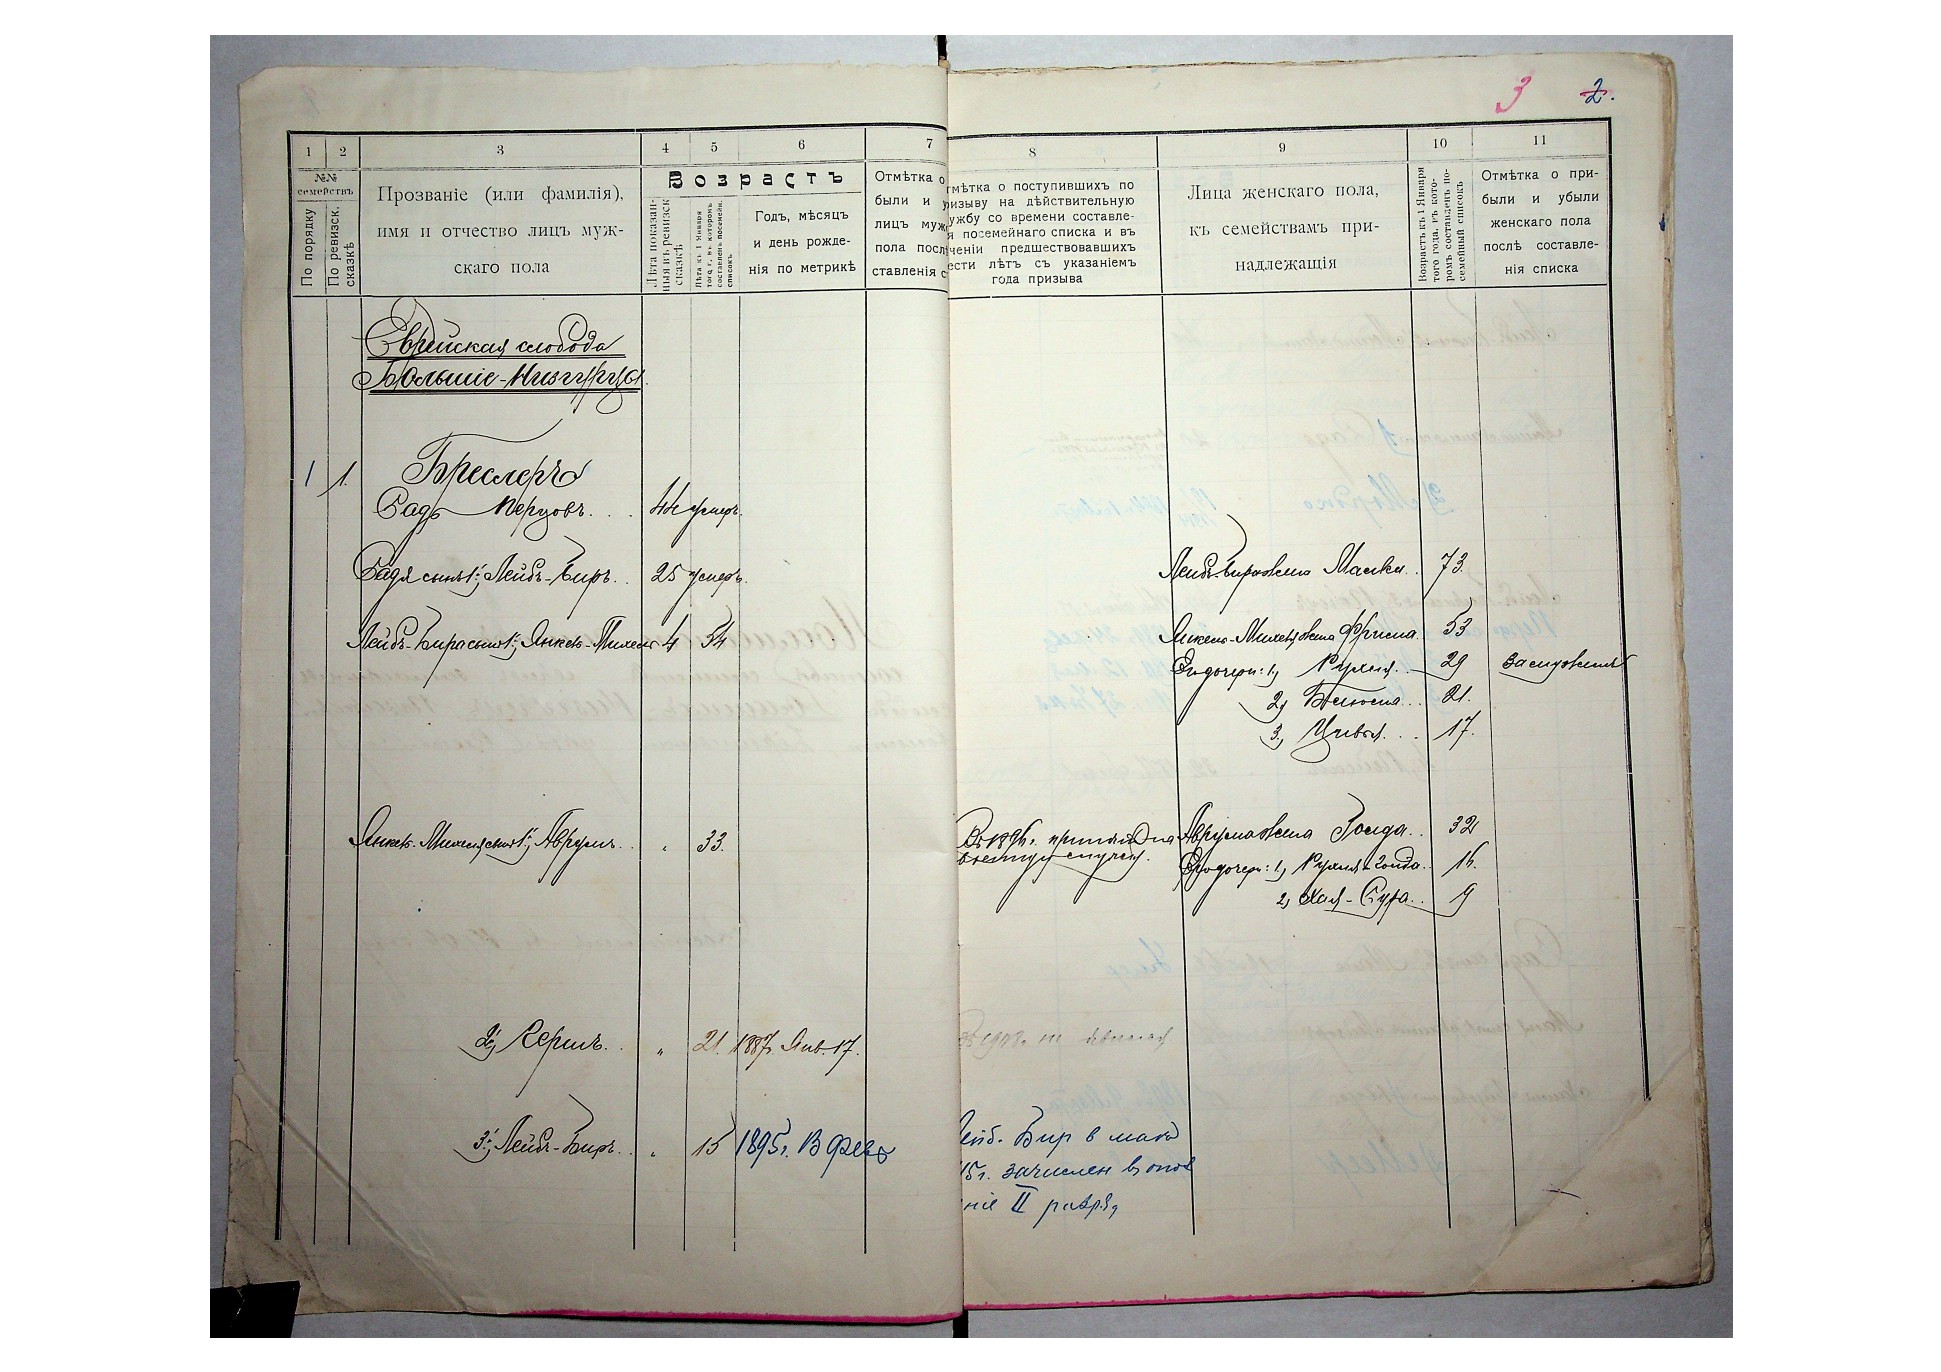 3 2.
1
2
3
4
5
6
7
8
9
10
11
№№
семействъ
По порядку
По ревизск.
сказкѣ
Прозваніе (или фамилія),
имя и отчество лицъ муж-
скаго пола
Возрастъ
Лѣта показан-
ныя въ ревизск
сказкѣ
Лѣта къ 1 Января
того г., въ которомъ
составленъ посемейн.
списокъ
Годъ, мѣсяцъ
и день рожде-
нія по метрикѣ
Отмѣтка о
были и у
лицъ муж
пола посл
ставленія с
мѣтка о поступившихъ по
ризыву на дѣйствительную
ужбу со времени составле-
я посемейнаго списка и въ
ченіи предшествовавшихъ
ести лѣтъ съ указаніемъ
года призыва
Лица женскаго пола,
къ семействамъ при-
надлежащія
Возрастъ къ 1 Января
того года, въ кото-
ромъ составленъ по-
семейный списокъ
Отмѣтка о при-
были и убыли
женскаго пола
послѣ составле-
нія списка
Еврейская слобода
Большіе-Низгурцы.
1 1. Бреслеръ
Садъ Перцовъ. . . 44 умеръ.
Садя сынъ 1й, Лейбъ-Биръ. . 25 умеръ. Лейбъ-Бирова жена Малка. . 73.
Лейбъ-Бира сынъ 1й, Янкель-Михель 4 54 Янкель-Михелева жена Фрима. 53
Его дочери: 1, Рухля. 29 замужемъ
2, Бенюма. . 21.
3, Цивья. . . 17.
Янкель-Михеля сынъ 1й, Аврумъ. . „ 33. Въ 1896 г. принятъ на Аврумова жена Голда. . 32
Его дочери: 1, Рухля-Голда. . 16.
2, Хая-Сура. . 9
2й, Герш. . „ 21. 1887. Янв. 17. не явился
3й, Лейбъ-Биръ. . „ 15 1895 г. 13 Февр Лейб. Бир в мањ
15 г. зачислен в опол
ніе II разряд